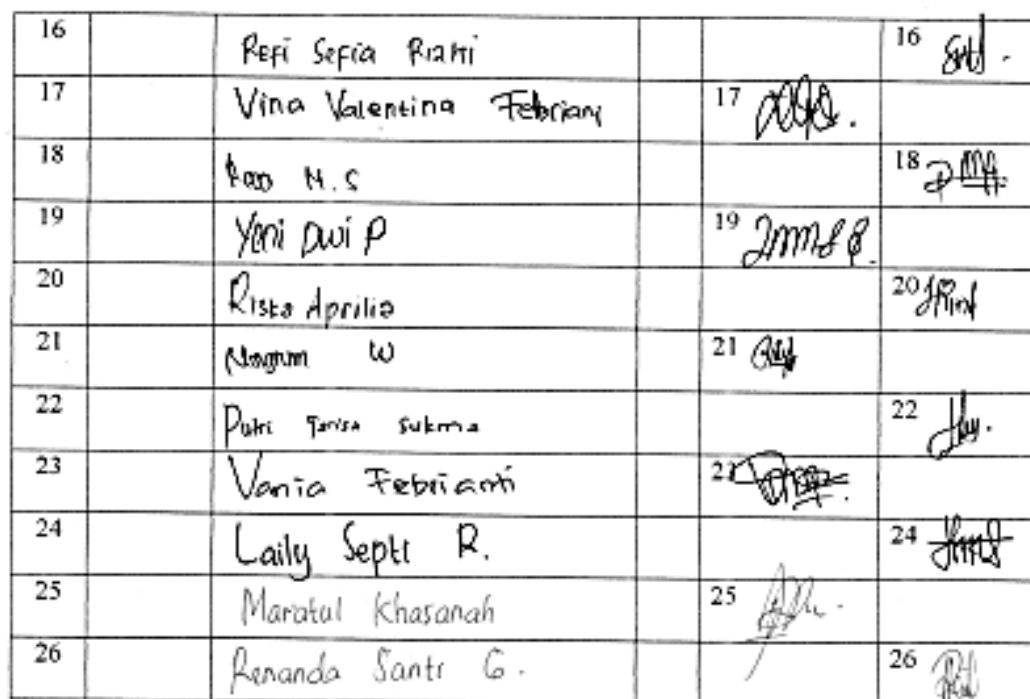 16 Refi Sefia Rizki 16
17 Vina Valentina Febriani 17
18 M.S 18
19 Yeni Dwi P 19
20 Riska Aprilia 20
21 W 21
22 Putri Sukma 22
23 Vania Febrianti 23
24 Laily Septi R. 24
25 Maratul Khasanah 25
26 Renanda Santi G. 26